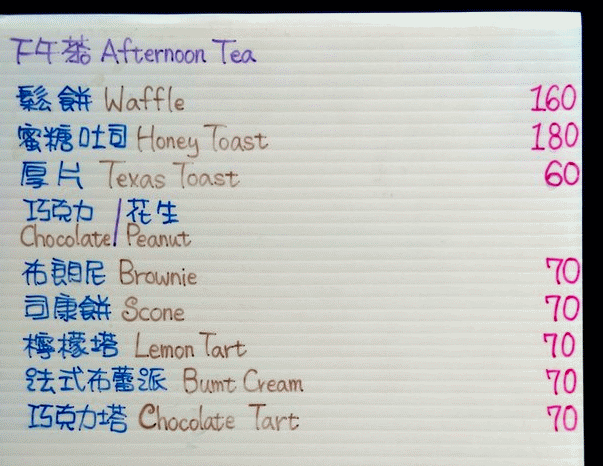 下午茶 Afternoon Tea
鬆餅 Waffle 160
蜜糖吐司 Honey Toast 180
厚片 Texas Toast 60
巧克力 / 花生
Chocolate / Peanut
布朗尼 Brownie 70
司康餅 Scone 70
檸檬塔 Lemon Tart 70
法式布蕾派 Burnt Cream 70
巧克力塔 Chocolate Tart 70